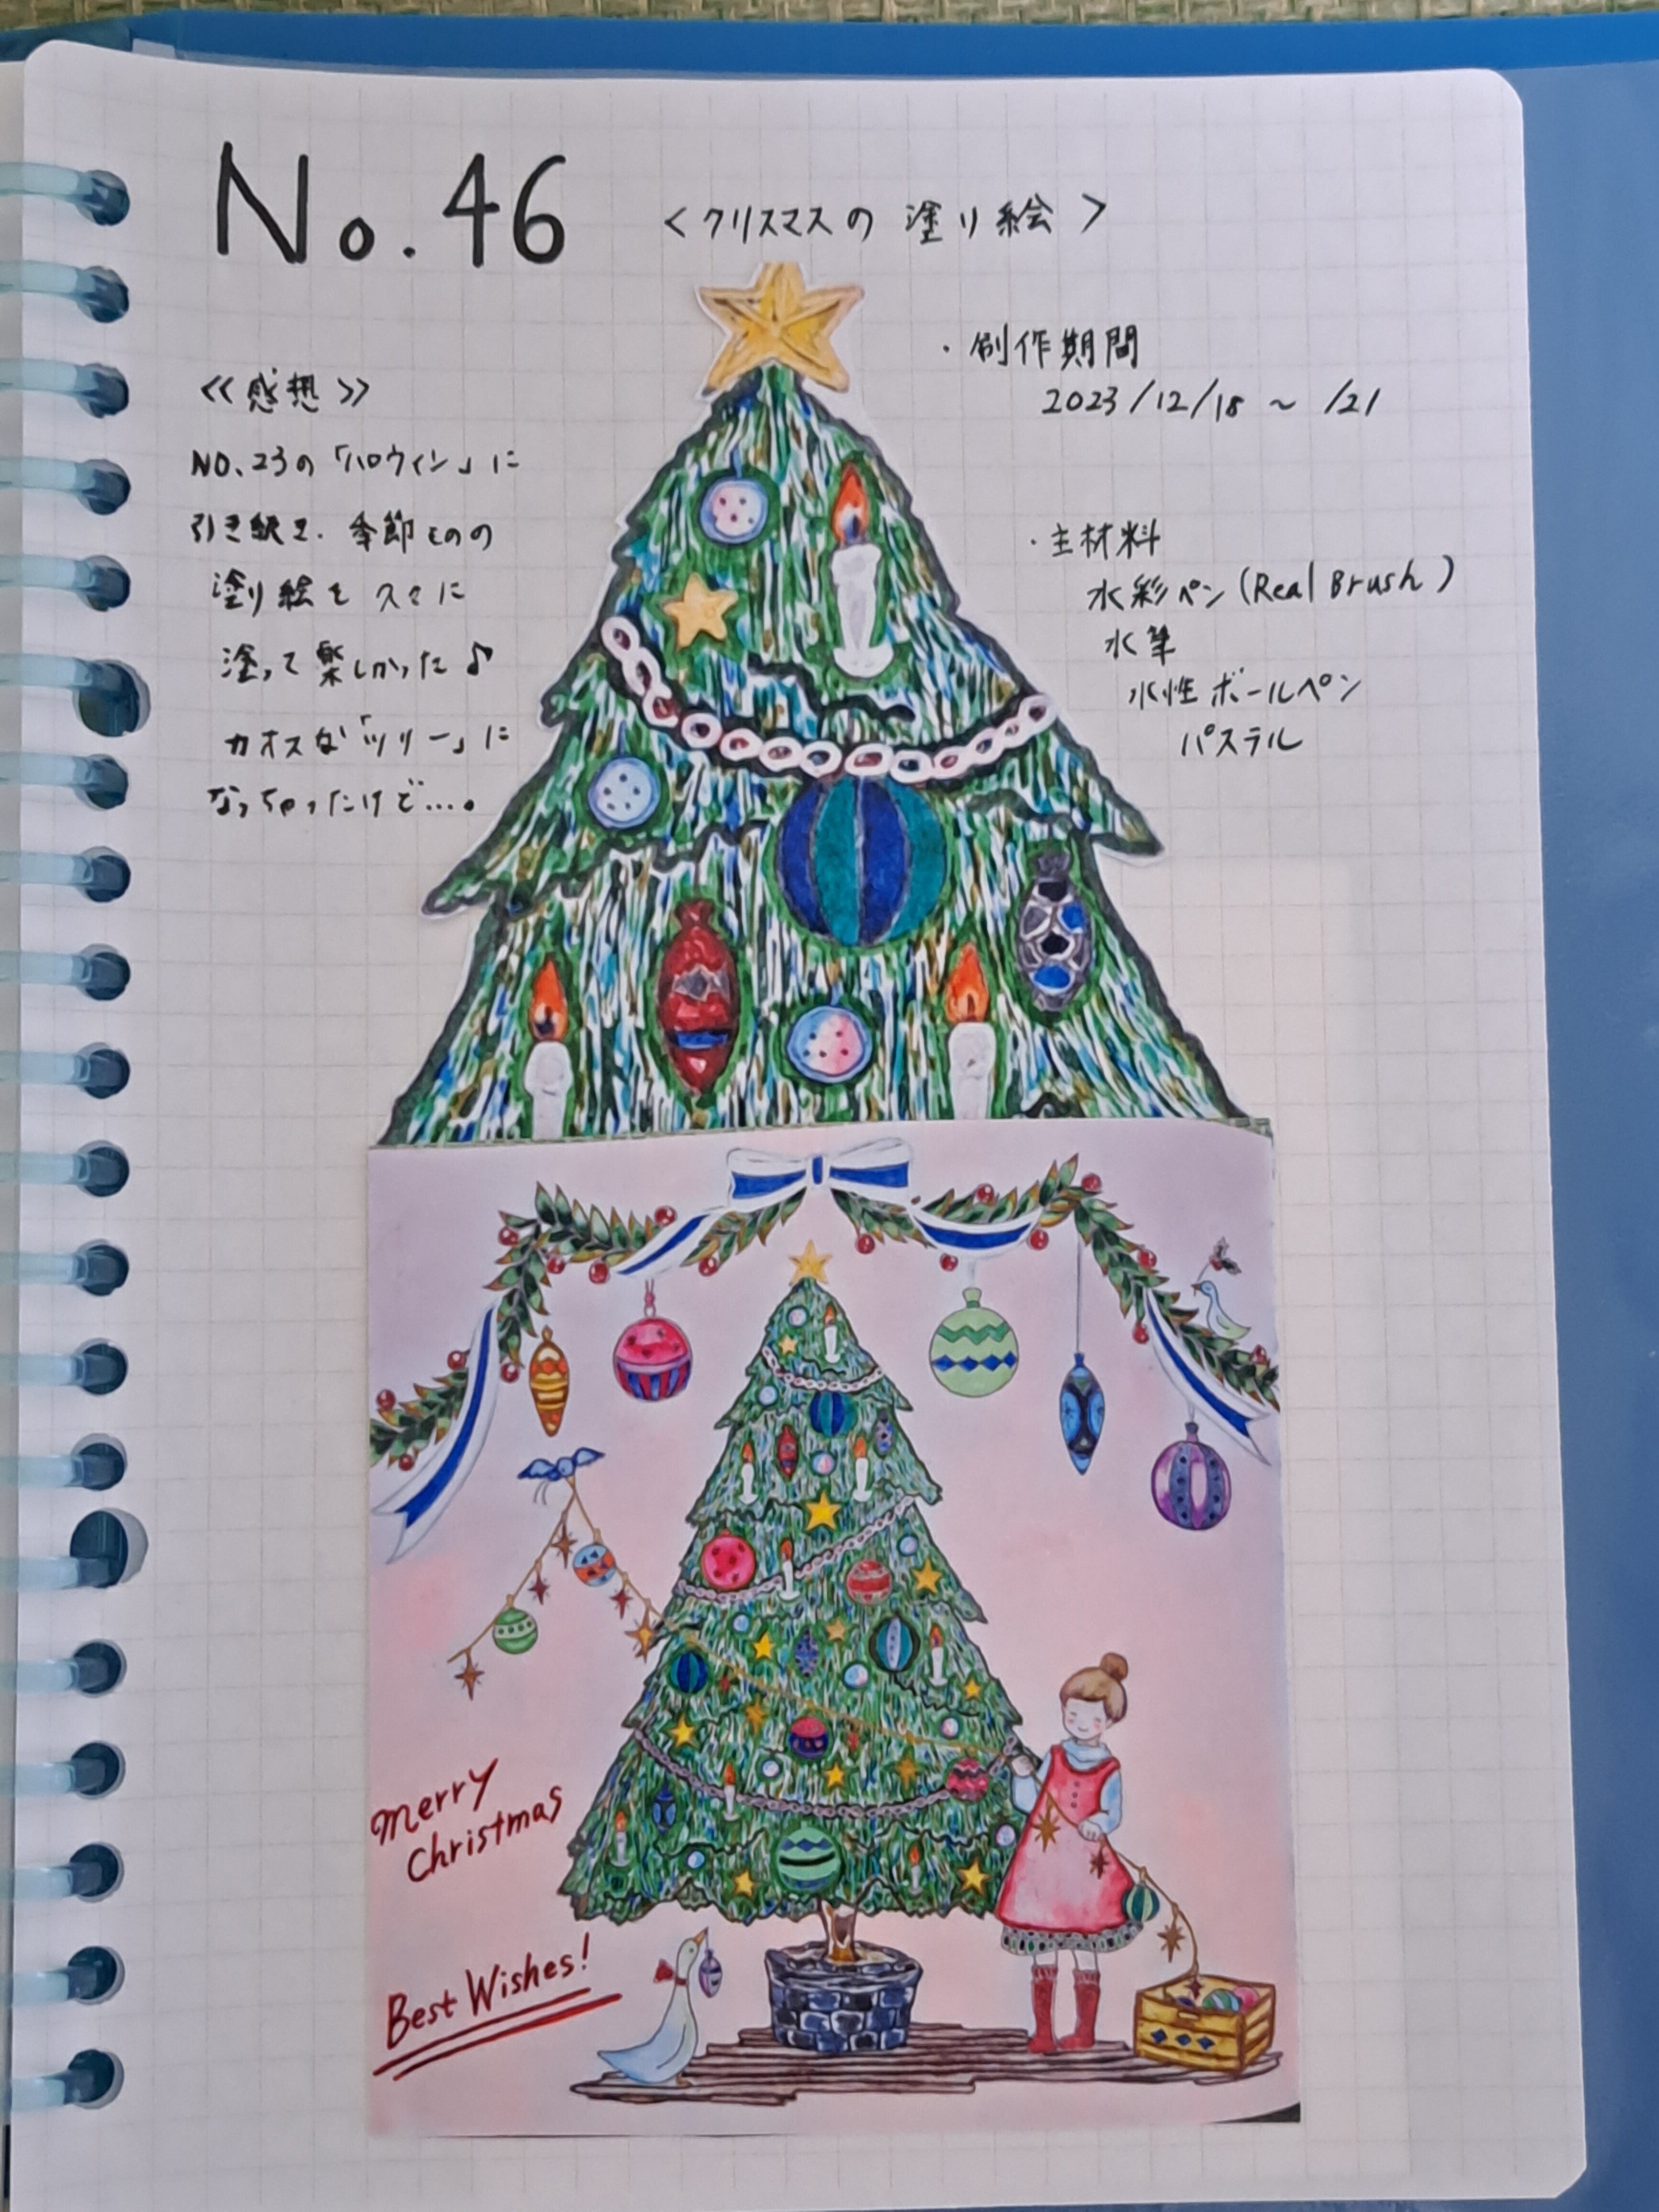 No.46
<クリスマスの塗り絵>
・創作期間
2023/12/18 ~ /21
・主材料
水彩ペン(Real Brush)
水筆
水性ボールペン
パステル
≪感想≫
NO.23の「ハロウィン」に
引き続き、季節ものの
塗り絵を久々に
塗って楽しかった♪
カオスな「ツリー」に
なっちゃったけど…。
merry
christmas
Best Wishes!